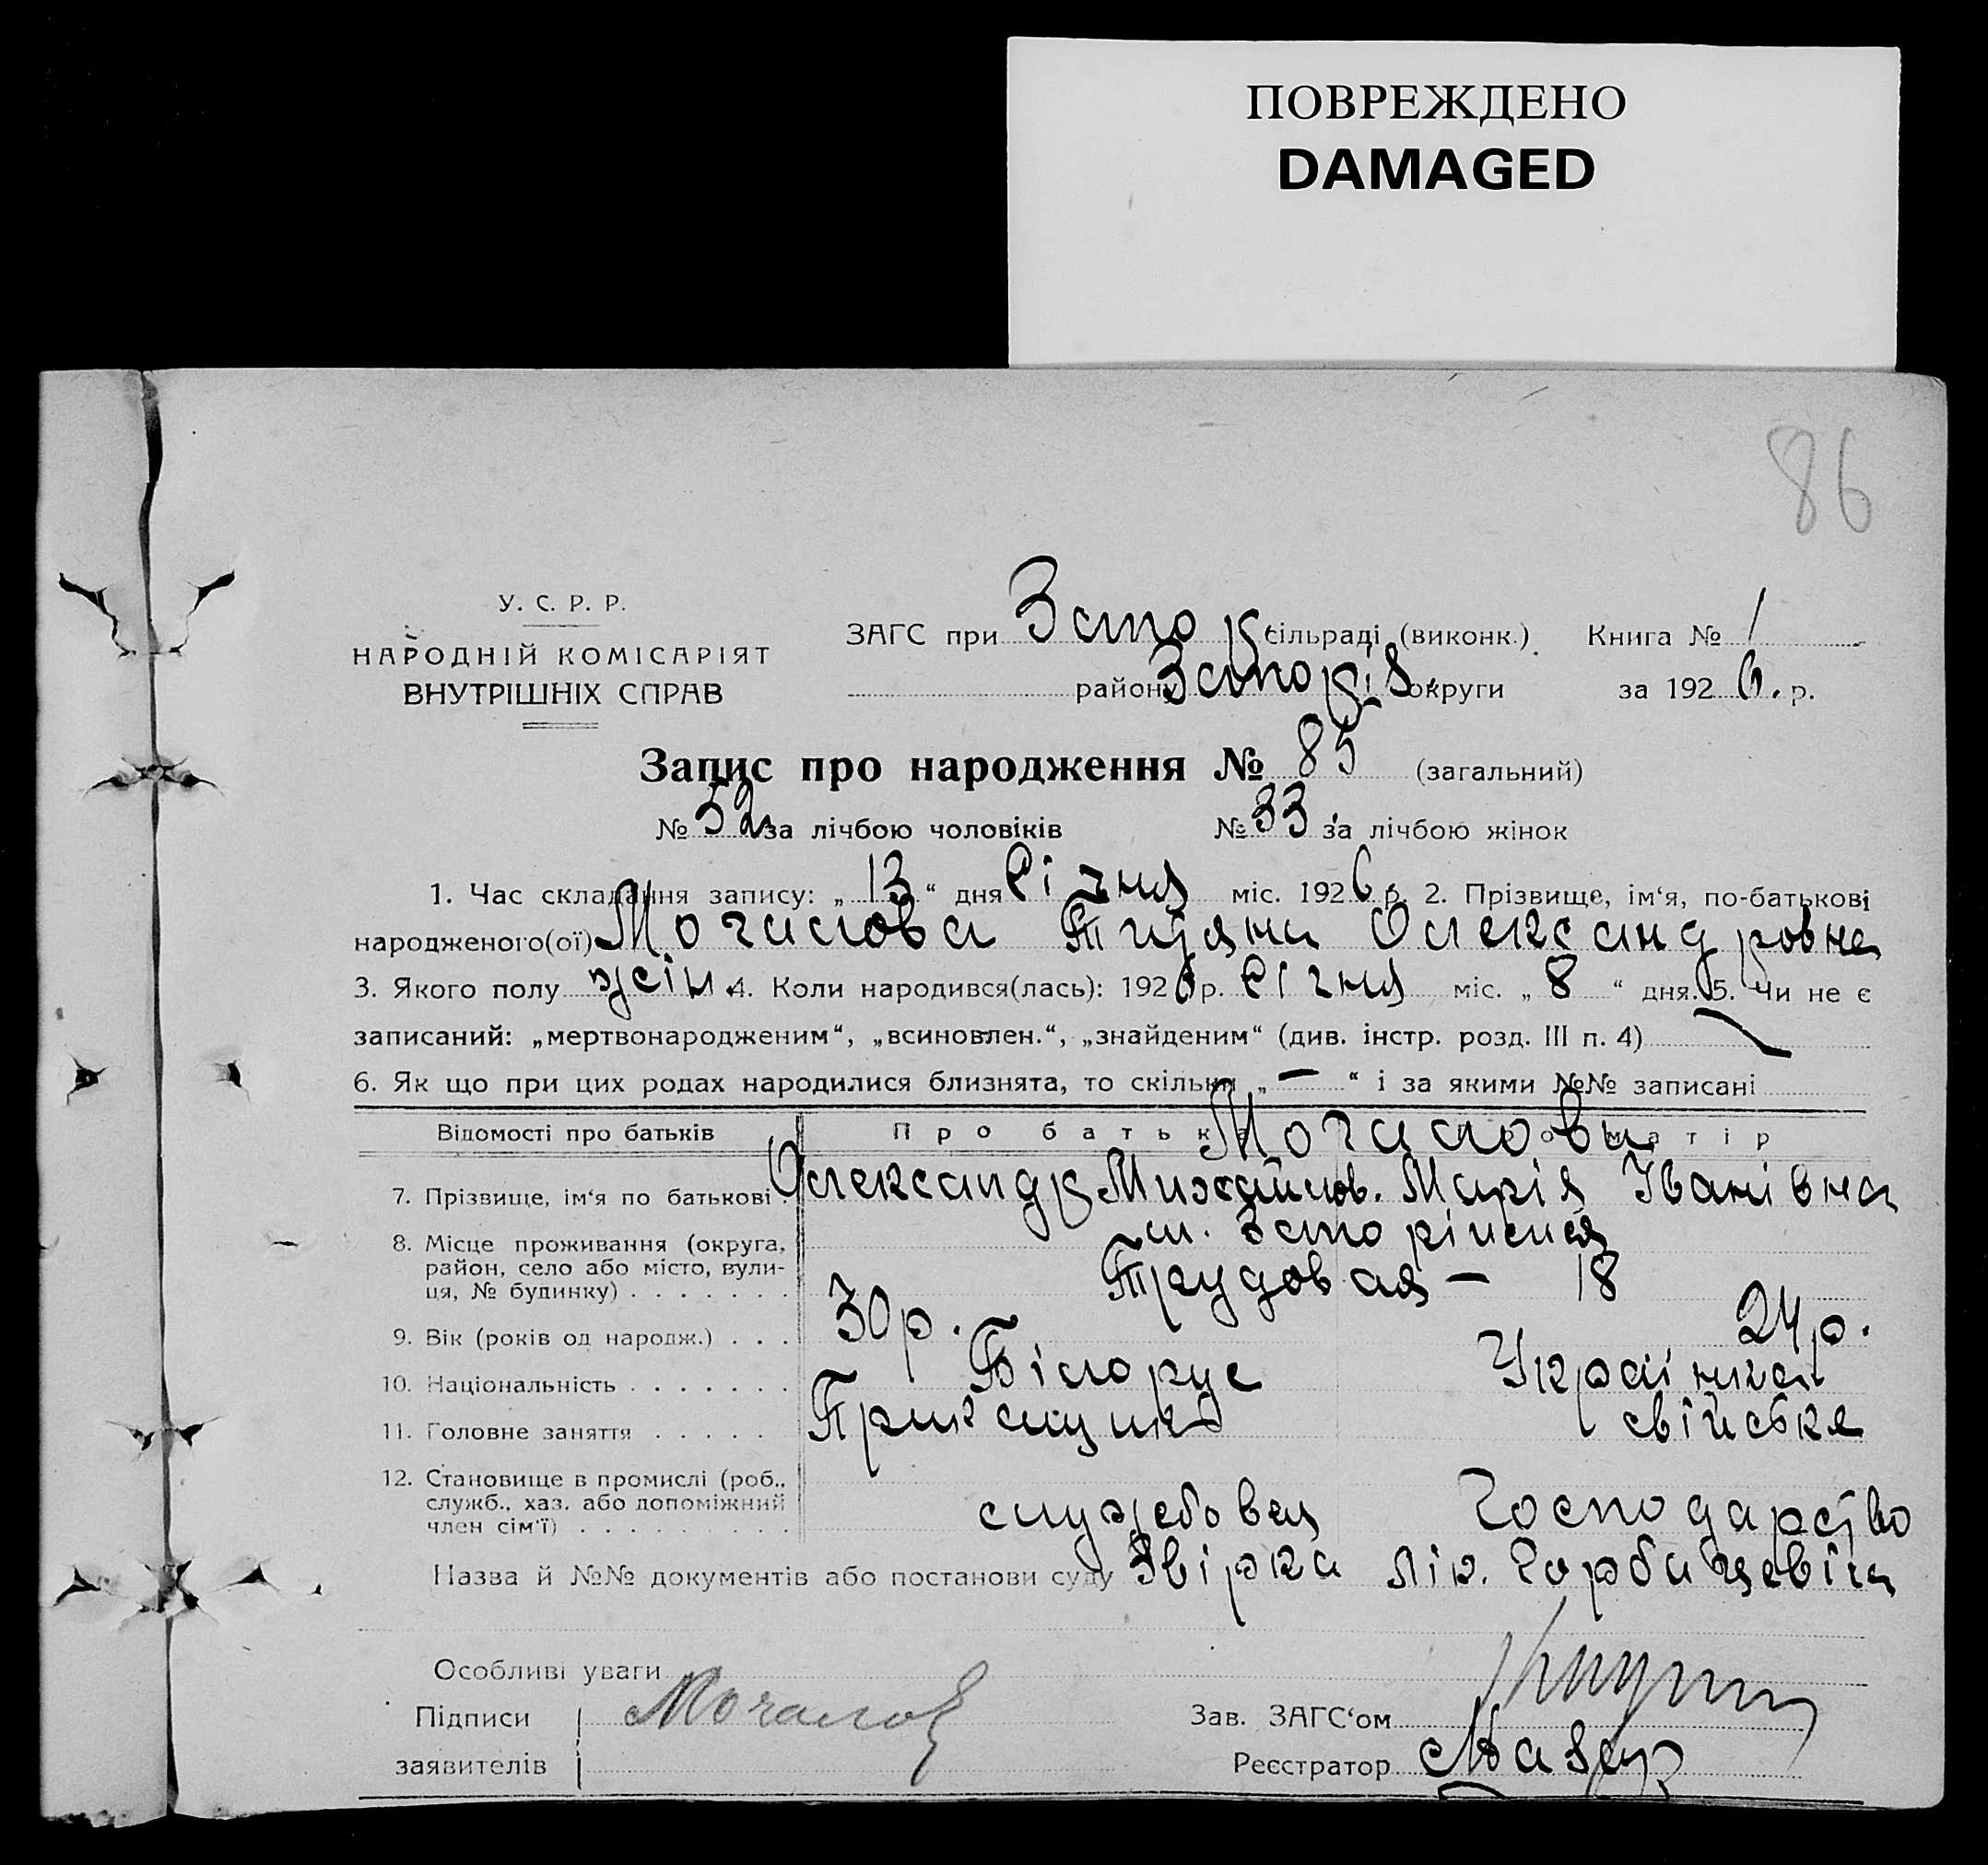 ПОВРЕЖДЕНО
DAMAGED
86
У. С. Р. Р.
НАРОДНІЙ КОМІСАРІЯТ
ВНУТРІШНІХ СПРАВ
ЗАГС при Запор. сільраді (виконк.) Книга № 1
району Запоріз. округи за 1926. р.
Запис про народження № 85 (загальний)
№ 52 за лічбою чоловіків № 33 за лічбою жінок
1. Час складання запису: „ 13 “ дня січня міс. 1926 р. 2. Прізвище, ім‘я, по-батькові
народженого(ої) Мочалова Тетяна Олександровна
3. Якого полу жін. 4. Коли народився(лась): 1926 р. січня міс. „ 8 “ дня. 5. Чи не є
записаний: „мертвонародженим“, „всиновлен.“, „знайденим“ (див. інстр. розд. III п. 4) —
6. Як що при цих родах народилися близнята, то скільки „ — “ і за якими №№ записані
Відомості про батьків Про батька Про матір
Мочалови
7. Прізвище, ім‘я по батькові Олександр Михайлов. Марія Іванівна
8. Місце проживання (округа, район, село або місто, вулиця, № будинку) м. Запоріжжя
Трудовая — 18
9. Вік (років од народж.) 30 р. 24 р.
10. Національність Білорус Українка
11. Головне заняття Прикащик свійське
12. Становище в промислі (роб., служб., хаз. або допоміжний член сім‘ї) служебовец господарство
Назва й №№ документів або постанови суду Звірка лік. Горбацевіча
Особливі уваги
Підписи Мочалов Зав. ЗАГС‘ом
заявителів Реєстратор Мазур